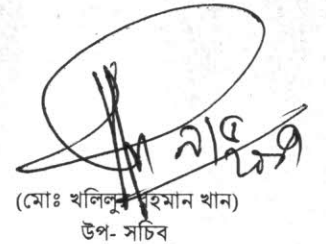 (মোঃ খলিলুর রহমান খান)
উপ- সচিব